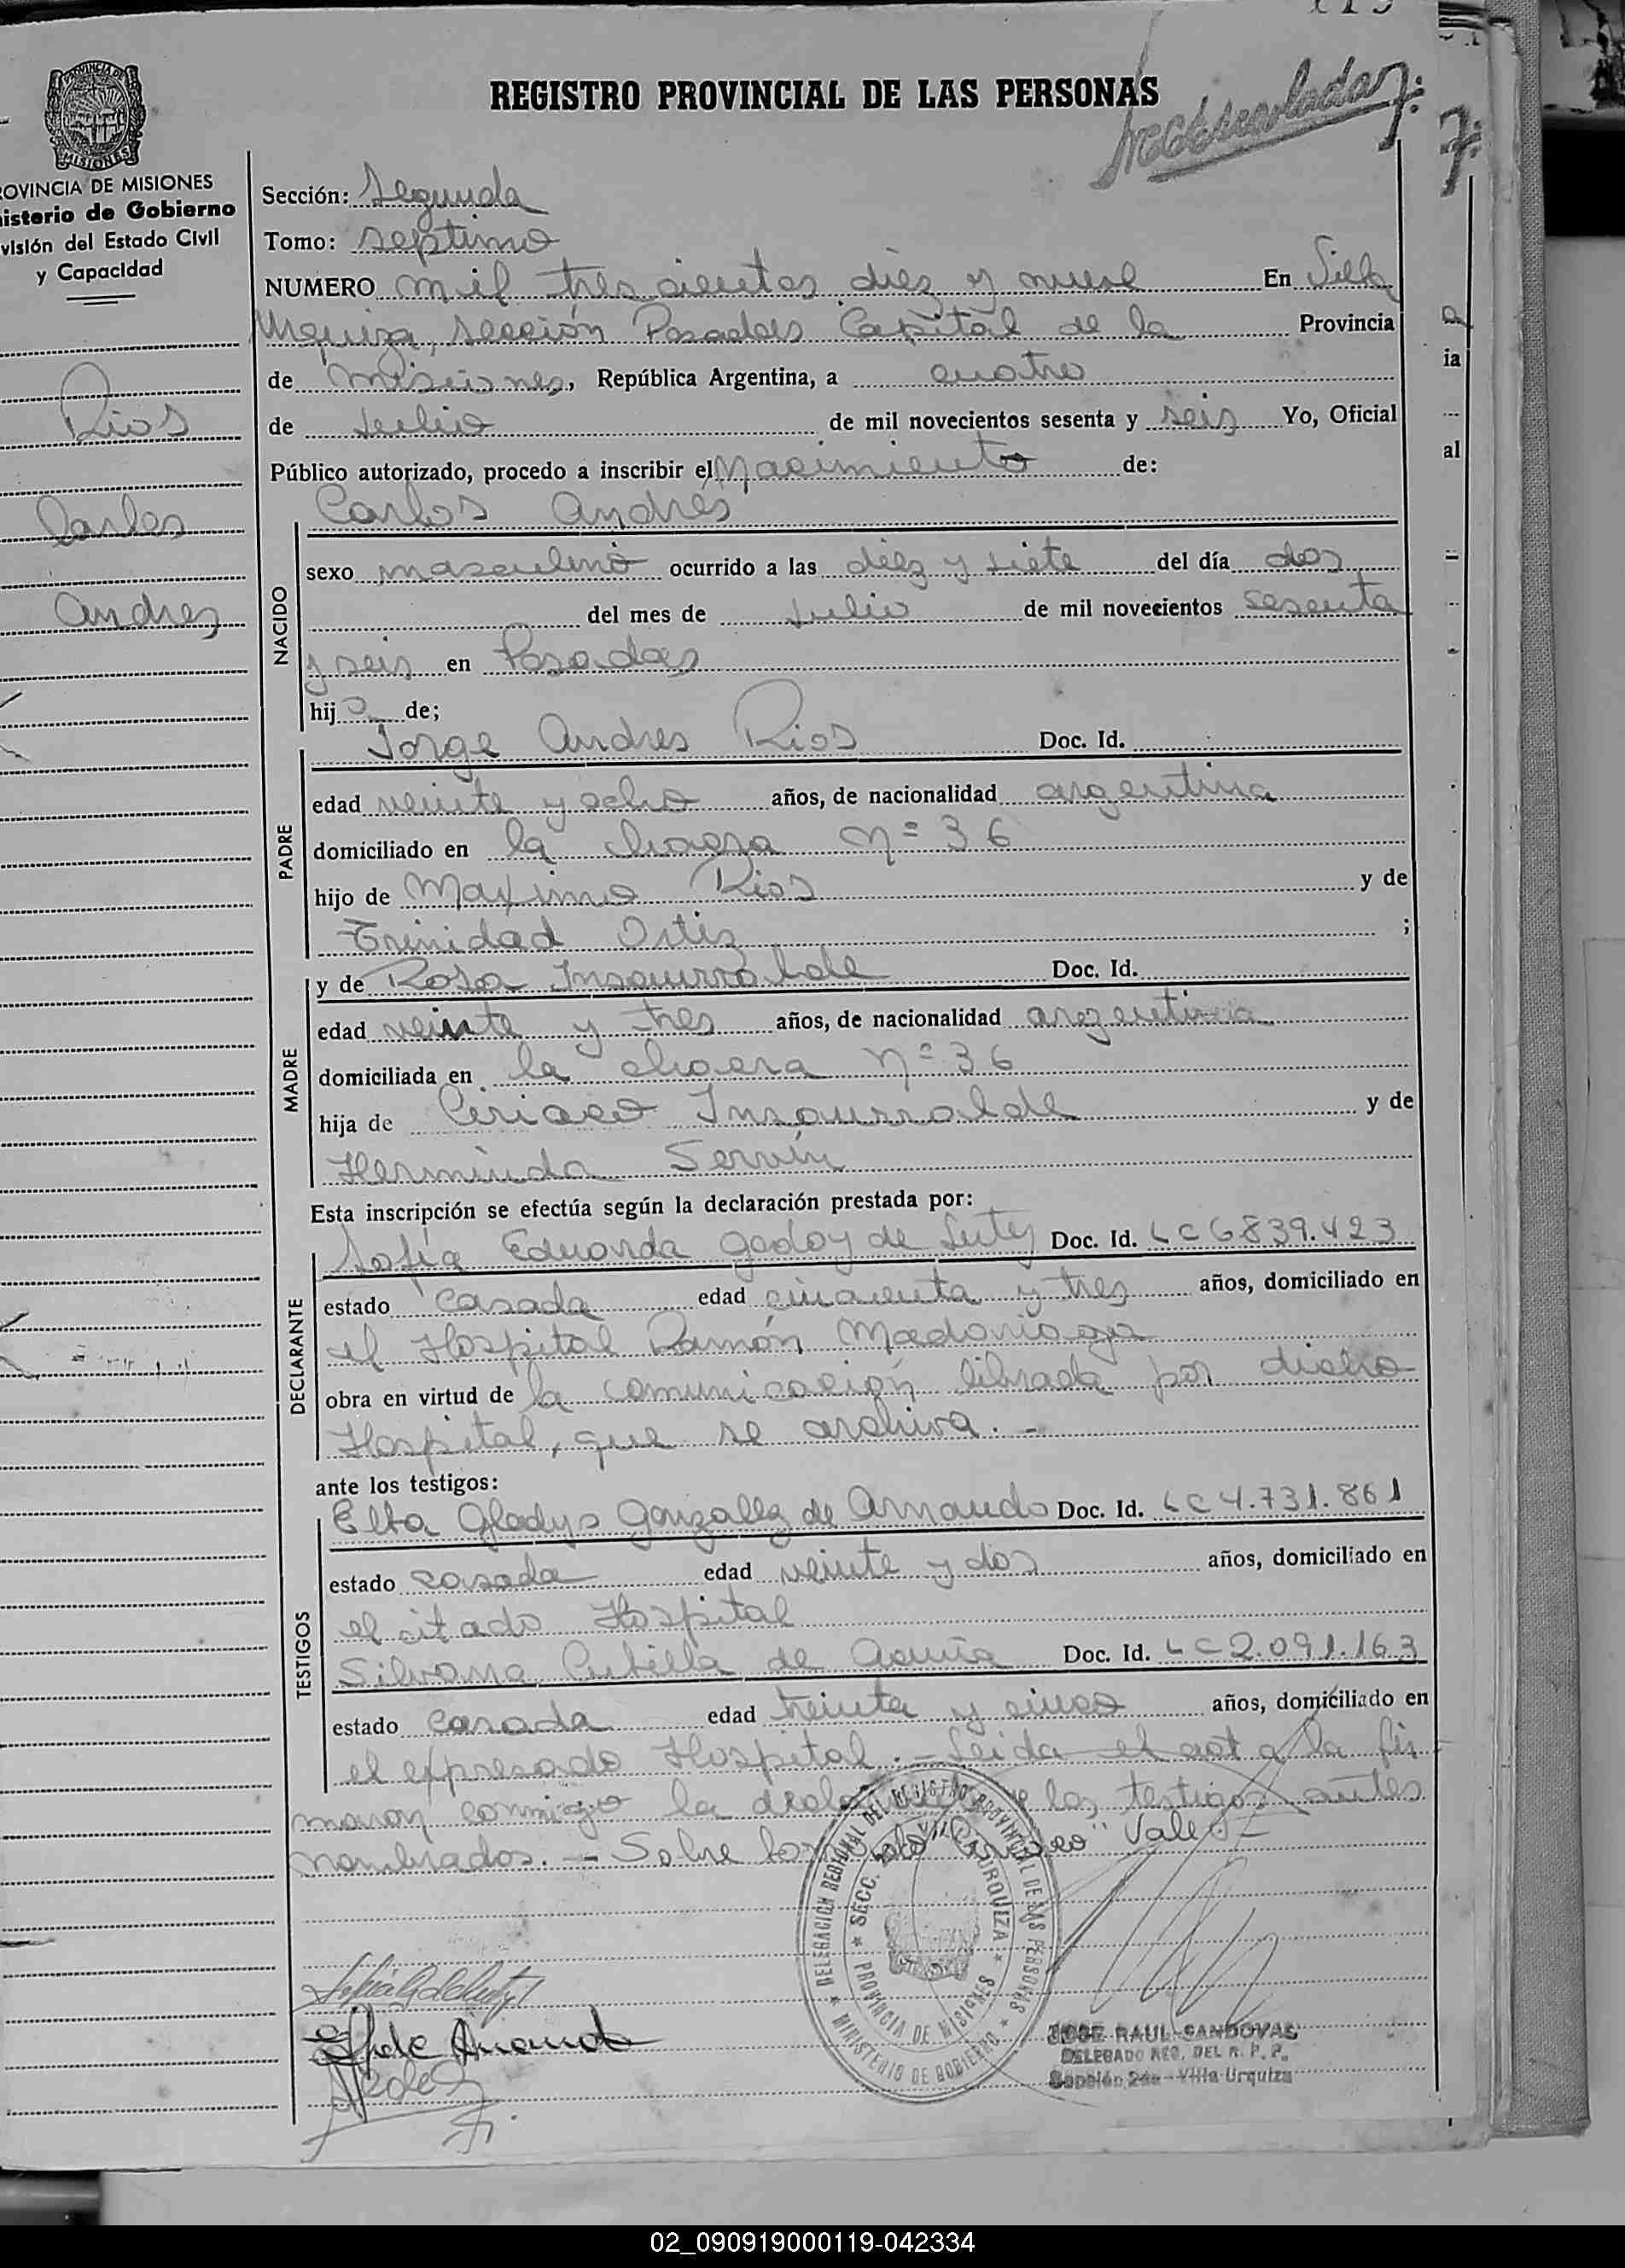 REGISTRO PROVINCIAL DE LAS PERSONAS
PROVINCIA DE
MISIONES
ROVINCIA DE MISIONES
isterio de Gobierno
visión del Estado Civil
y Capacidad
Rios
Carlos
Andres
Sección: Segunda
Tomo: septimo
NUMERO mil trescientos diez y nueve En Villa
Urquiza, sección Posadas Capital de la Provincia
de Misiones, República Argentina, a cuatro
de Julio de mil novecientos sesenta y seis Yo, Oficial
Público autorizado, procedo a inscribir el Nacimiento de:
Carlos Andrés
NACIDO
sexo masculino ocurrido a las diez y siete del día dos
del mes de Julio de mil novecientos sesenta
y seis en Posadas
hijo de;
PADRE
Jorge Andres Rios Doc. Id.
edad veinte y ocho años, de nacionalidad argentina
domiciliado en la chacra nº 36
hijo de Maximo Rios y de
Trinidad Ortiz ;
MADRE
y de Rosa Insaurralde Doc. Id.
edad veinte y tres años, de nacionalidad argentina
domiciliada en la chacra nº 36
hija de Ciriaco Insaurralde y de
Herminda Servin
Esta inscripción se efectúa según la declaración prestada por:
DECLARANTE
Sofia Eduarda Godoy de Doc. Id. LC 6839.423
estado casada edad cincuenta y tres años, domiciliado en
el Hospital Ramón Madariaga
obra en virtud de la comunicación librada por dicho
Hospital, que se archiva. -
ante los testigos:
TESTIGOS
Elta Gladys Gonzalez de Arnaudo Doc. Id. LC 4.731.861
estado casada edad veinte y dos años, domiciliado en
el citado Hospital
Silvana Cubilla de Acuña Doc. Id. LC 2.091.163
estado casada edad treinta y cinco años, domiciliado en
el expresado Hospital. - Leida el acta la fir
maron conmigo la declarante y los testigos antes
nombrados. - Sobre borrado "Ciriaco" Vale. -
DELEGACION REGIONAL DEL REGISTRO PROVINCIAL DE LAS PERSONAS
MINISTERIO DE GOBIERNO
SECC. 2da VILLA URQUIZA
PROVINCIA DE MISIONES
JOSE RAUL SANDOVAL
DELEGADO REG. DEL R. P. P.
Sección 2da - Villa Urquiza
02_090919000119-042334